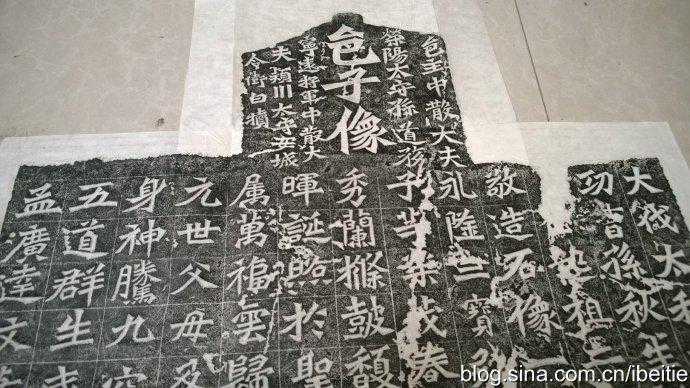 邑子像
邑主中散大夫
滎陽太守孫道務
寧遠將軍中散大
夫穎川太守安城
令衛白犢
大代太和
功曹孫秋生
起祖二
敬造石像
永隆三寶彌
子等榮茂春
秀蘭條鼓馥
暉誕照於聖
屬萬福雲歸
元世父母及
身神騰九空
五道群生咸
孟廣達文
blog.sina.com.cn/ibeitie